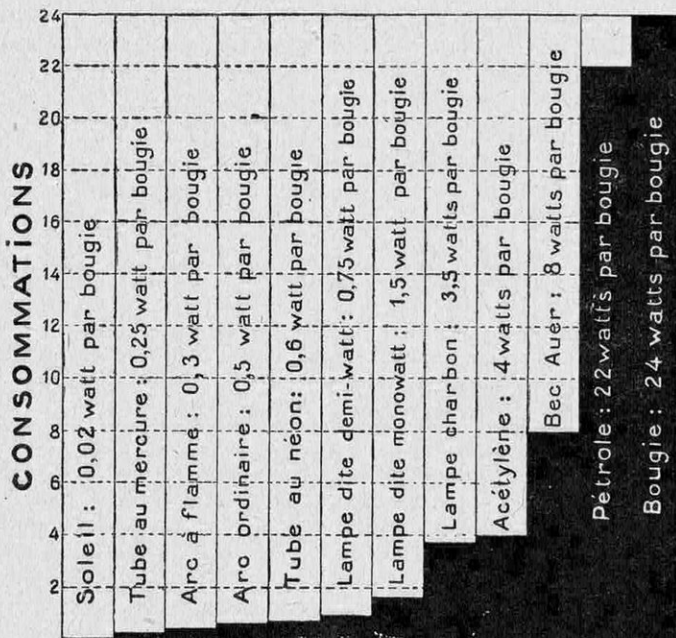 CONSOMMATIONS
24
22
20
18
16
14
12
10
8
6
4
2
Soleil : 0,02 watt par bougie
Tube au mercure : 0,25 watt par bougie
Arc à flamme : 0,3 watt par bougie
Arc ordinaire : 0,5 watt par bougie
Tube au néon : 0,6 watt par bougie
Lampe dite demi-watt : 0,75 watt par bougie
Lampe dite monowatt : 1,5 watt par bougie
Lampe charbon : 3,5 watts par bougie
Acétylène : 4 watts par bougie
Bec Auer : 8 watts par bougie
Pétrole : 22 watts par bougie
Bougie : 24 watts par bougie